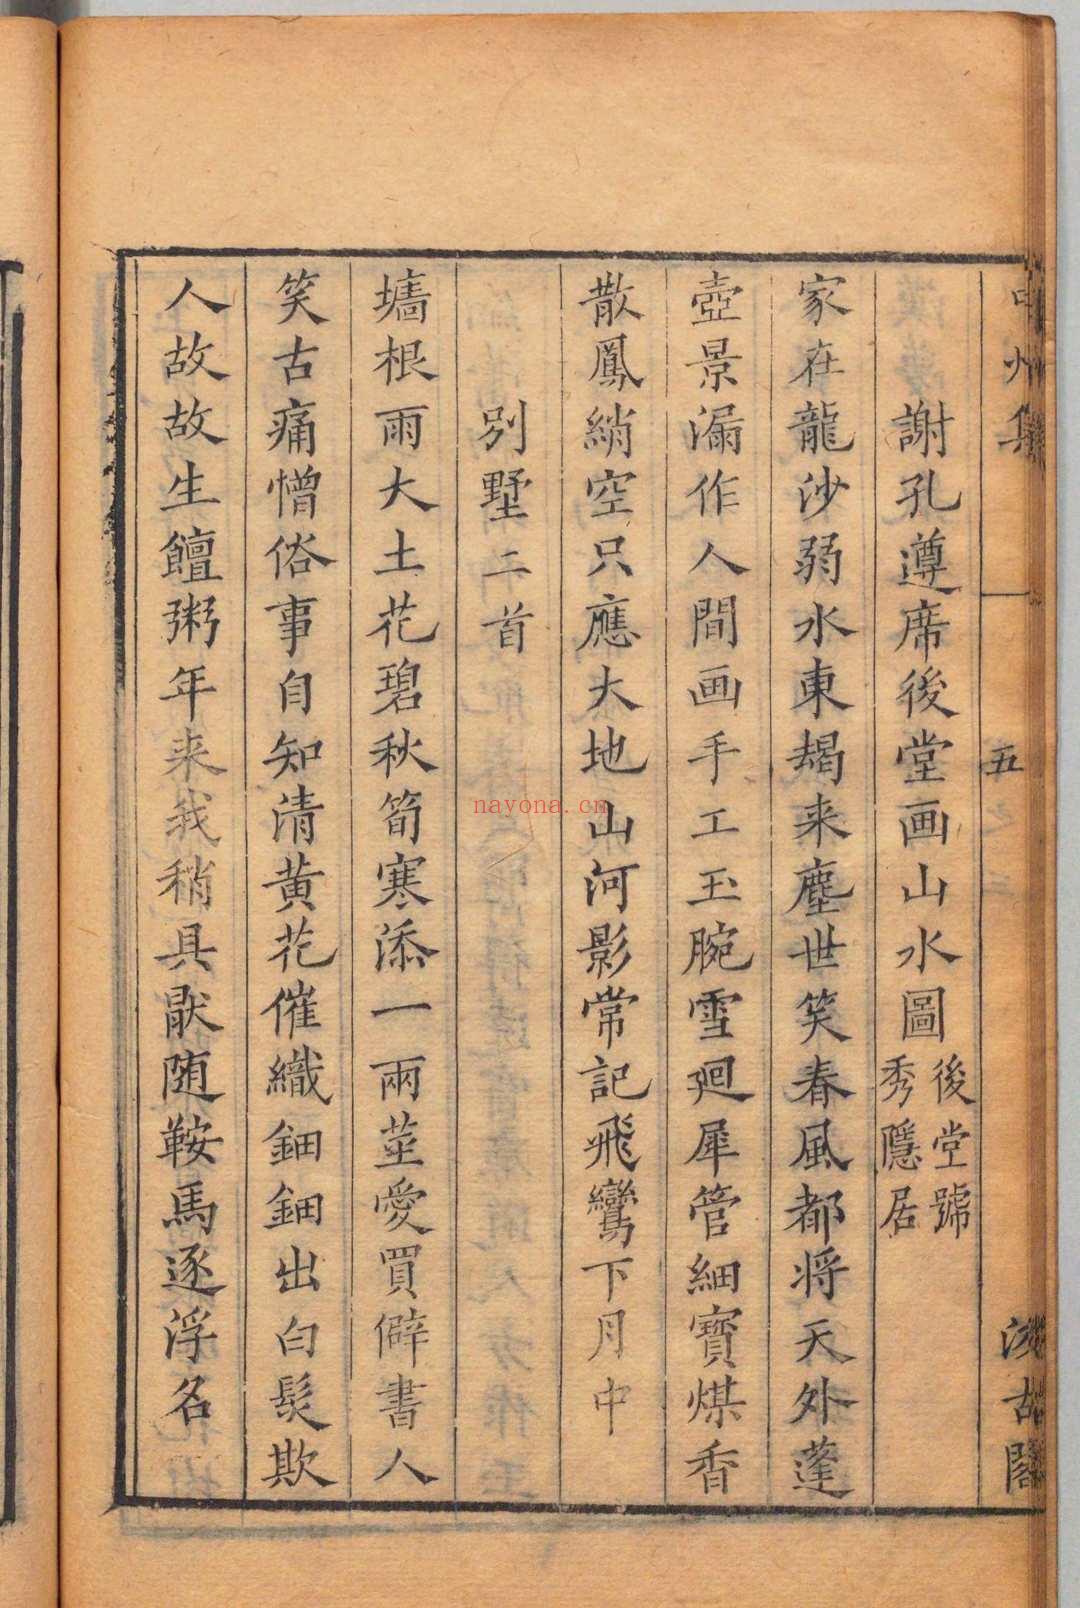 中州集 五 汲古閣
謝孔遵席後堂画山水圖 後堂號秀隱居
家在龍沙弱水東朅来塵世笑春風都将天外蓬
壺景漏作人間画手工玉腕雪廻犀管細寳煤香
散鳳綃空只應大地山河影常記飛鸞下月中
別墅二首
墻根雨大土花碧秋筍寒添一兩莖愛買僻書人
笑古痛憎俗事自知清黄花催織鈿鈿出白髪欺
人故故生饘粥年来我稍具厭随鞍馬逐浮名
nayona.cn